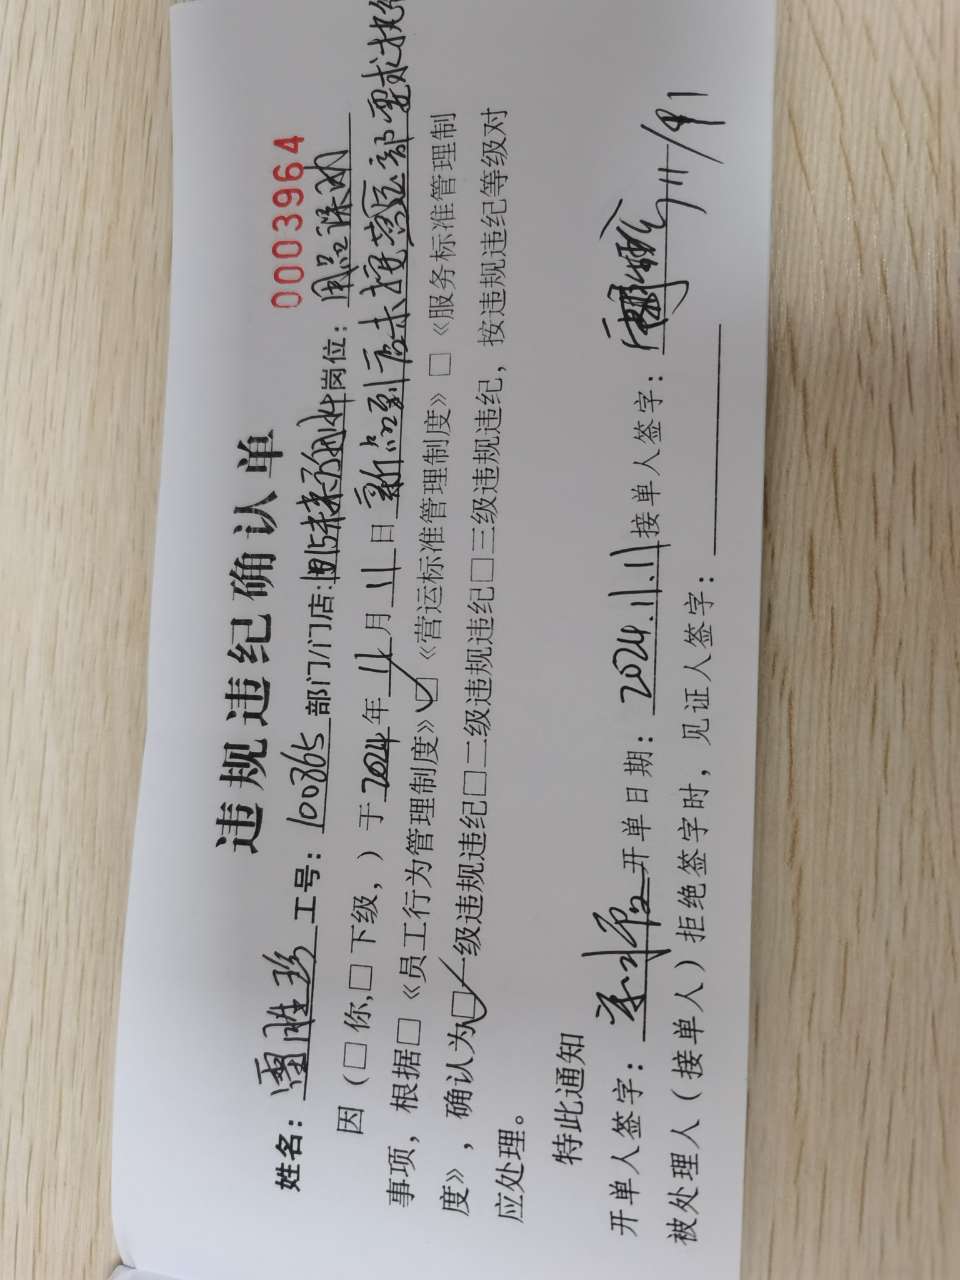 违规违纪确认单
0003964
姓名：雷胜珍 工号：100365 部门/门店： 岗位：
因（□你，□下级，）于2024年11月11日新品到店未按营运部要求执行
事项，根据□《员工行为管理制度》☑《营运标准管理制度》□《服务标准管理制
度》，确认为☑一级违规违纪□二级违规违纪□三级违规违纪，按违规违纪等级对
应处理。
特此通知
开单人签字： 开单日期：2024.11.11 接单人签字： 11/11
被处理人（接单人）拒绝签字时，见证人签字：